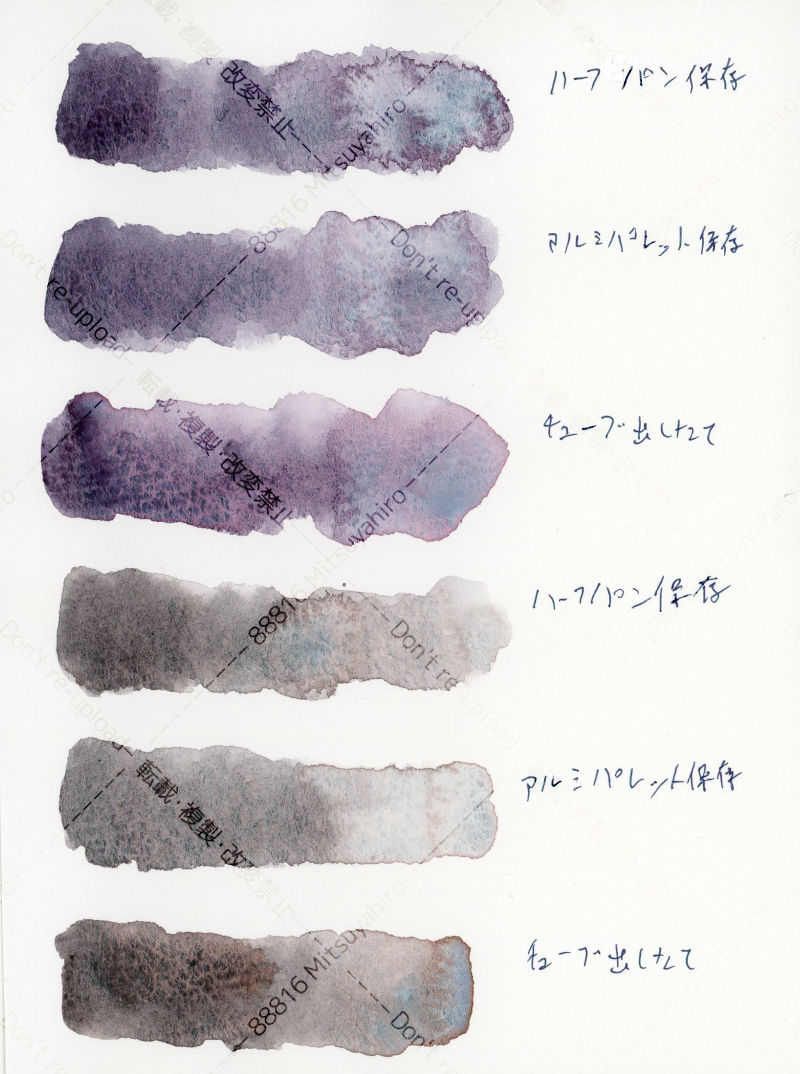 ハーフパン保存
アルミパレット保存
チューブ出したて
ハーフパン保存
アルミパレット保存
チューブ出したて
転載・複製・改変禁止
88816 Mitsuyahiro
Don't re-upload